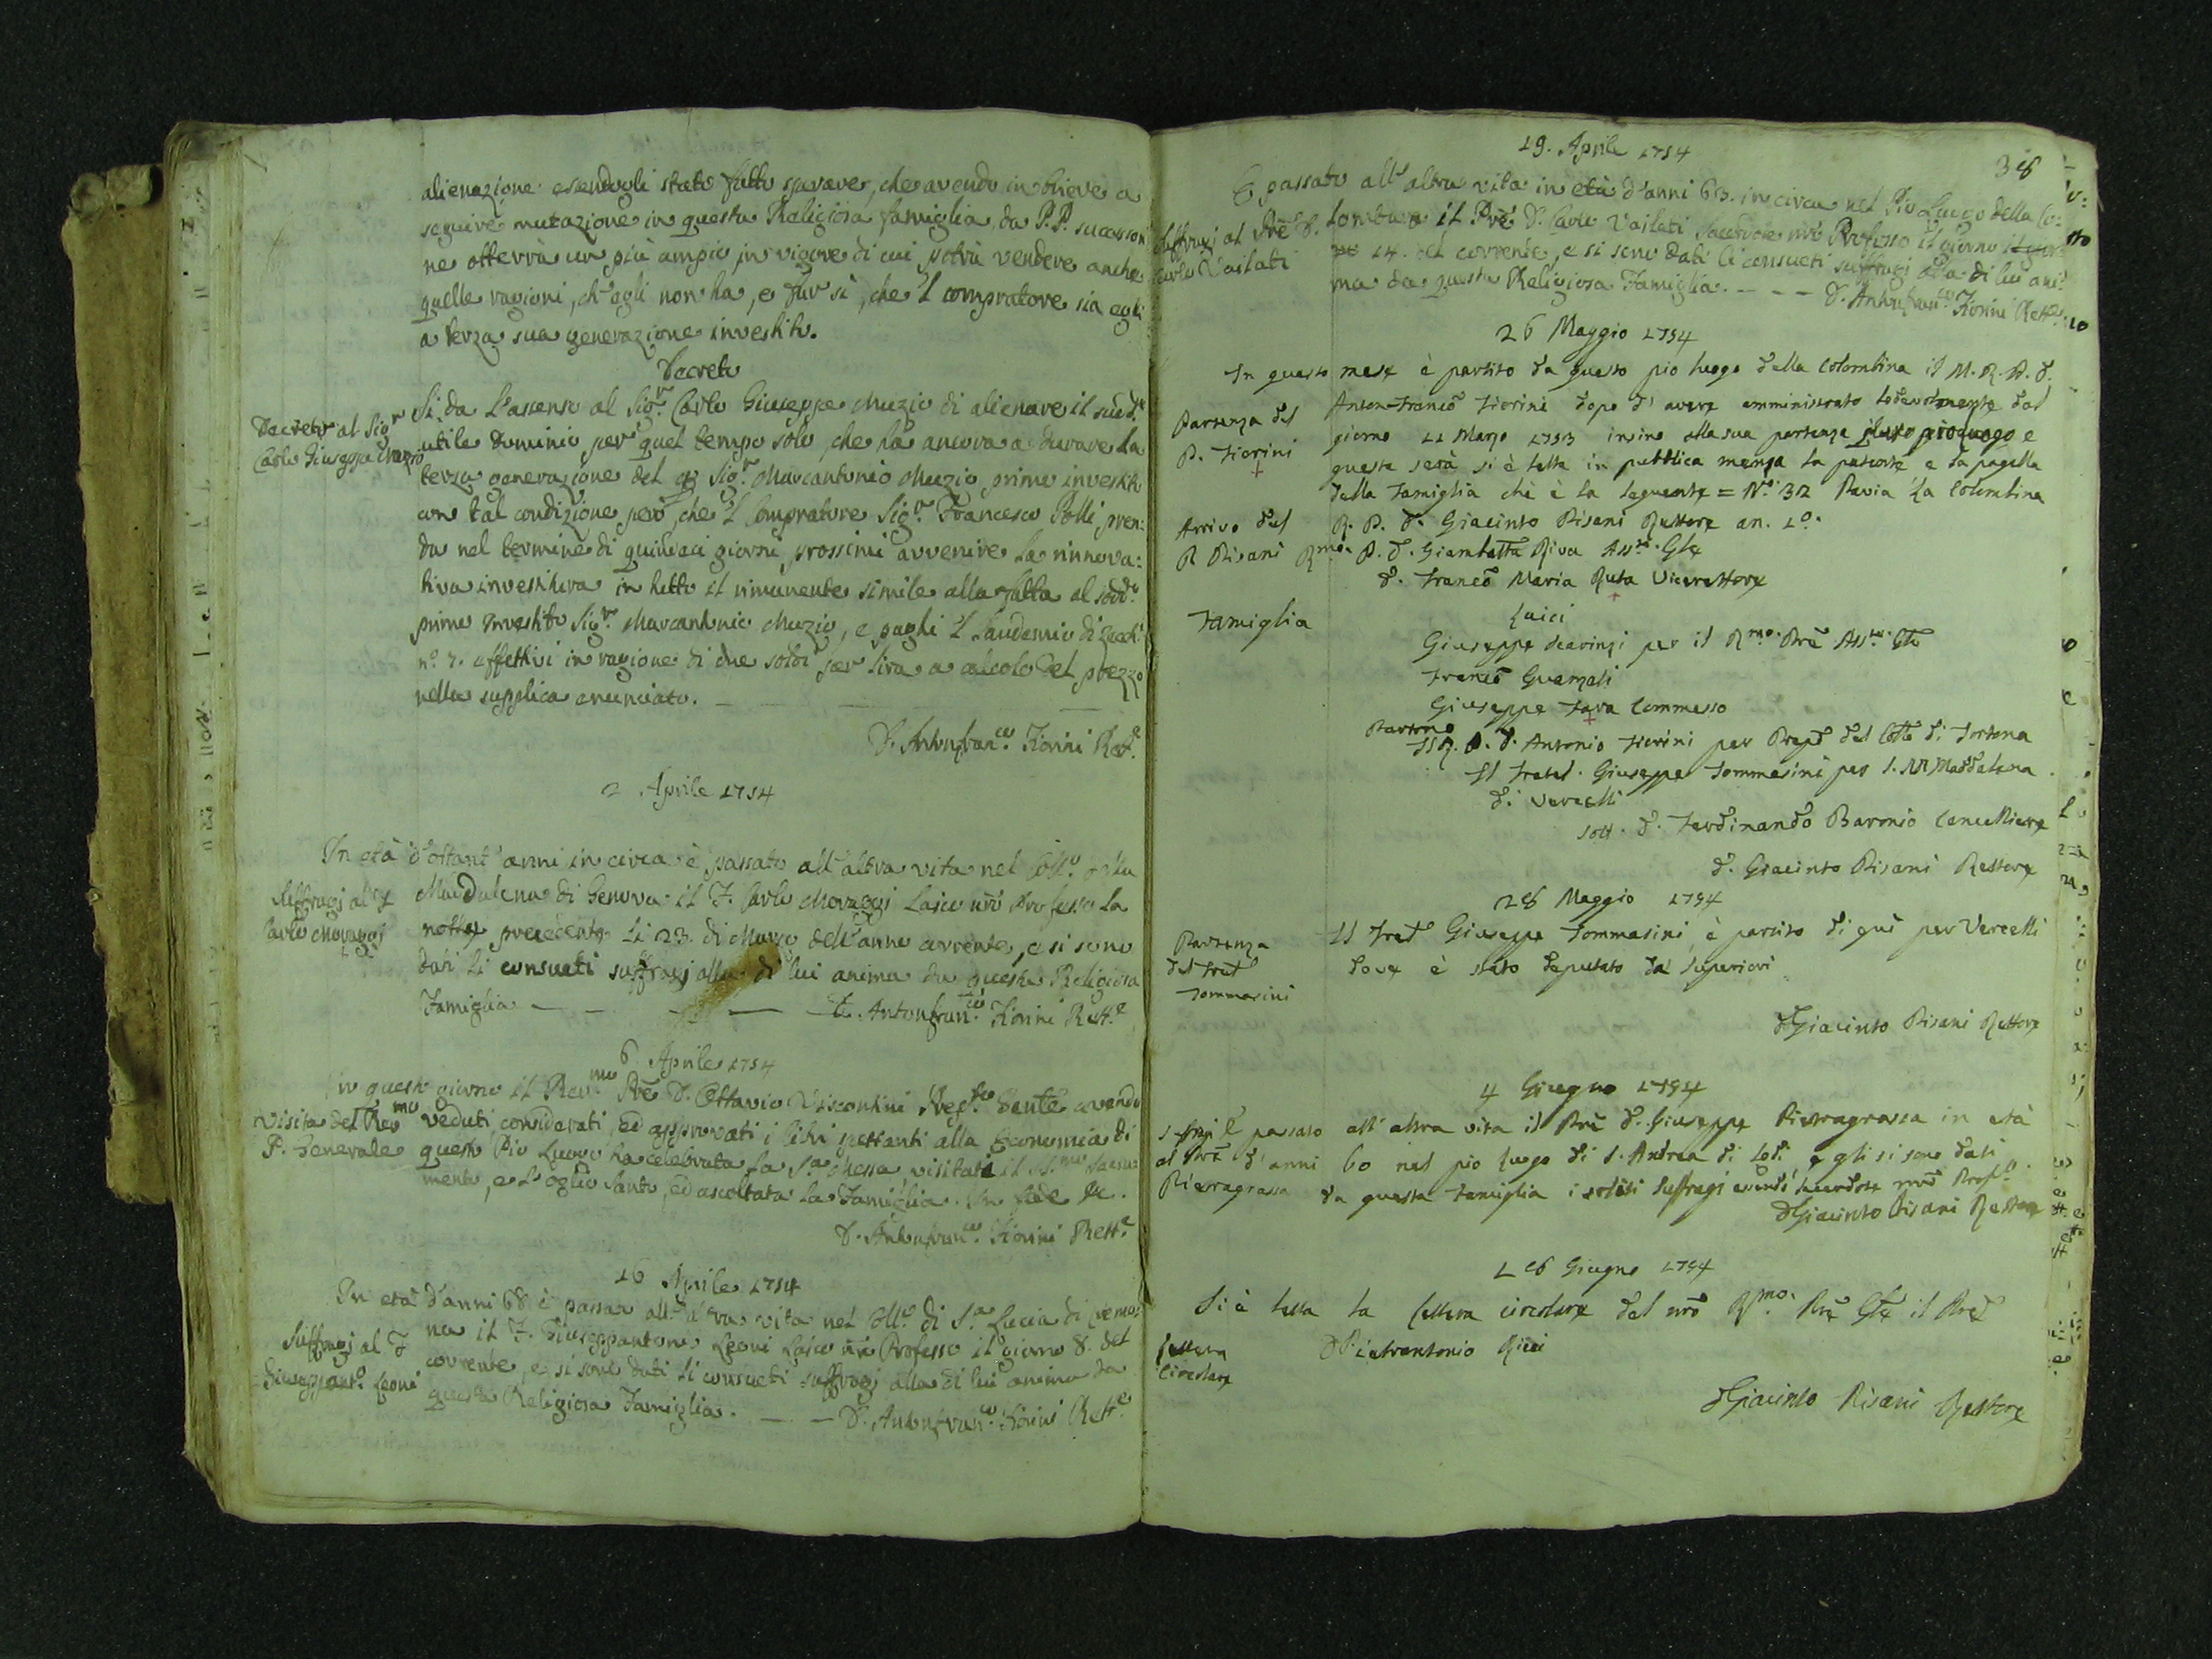 alienazione esendogli stato fatto sperare, che avendo in brieve a
seguire mutazione in questa Religiosa famiglia da P.P. sucessori
ne otterrà un più ampio in vigore di cui potrà vendere anche
quelle ragioni, ch'egli non ha, e far sì, che 'l compratore sia egli
a terza sua generazione investito.
Decreto
Decreto al Sigr
Carlo Giuseppe Muzio
Si da l'assenso al Sigr. Carlo Giuseppe Muzio di alienare il sudo
utile dominio per quel tempo solo, che ha ancora a durare la
terza generazione del Sigr. Marcantonio Muzio, primo investito
con tal condizione però, che 'l Compratore Sigr. Francesco Polli pren:
da nel termine di quindeci giorni prossimi avvenire la rinnova:
tiva investitura in tutto il rimanente simile alla fatta al sodo
primo Investito Sigr. Marcantonio Muzio, e paghi 'l Laudemio di Zecch.
no. 7. effettivi in ragione di due soldi per lira a calcolo del prezzo
nella supplica anunciato.
D. Antonfranco. Fiorini Rette
2 Aprile 1754
Suffragj al F
Carlo Moraggi
In età d'ottant'anni in circa è passato all'altra vita nel Collo della
Maddalena di Genova il F. Carlo Moraggi Laico nrō Professo la
notte precedente li 23. di Marzo dell'anno corrente, e si sono
dati li consueti suffragj alla di lui anima da questa Religiosa
Famiglia
D. Antonfranco. Fiorini Rette
6 Aprile 1754
Visita del Revmo
P. Generale
In questo giorno il Revmo Prē D. Ottavio Viscontini Prepto Genle avendo
veduti, considerati, ed approvati i libri spettanti alla Economia di
questo Pio Luogo ha celebrata la Sa Messa, visitati il SSmo Sacra:
mento, e l'oglio Santo, ed ascoltata la Famiglia. In fede &c.
D. Antonfranco. Fiorini Rette
16 Aprile 1754
Suffragj al F
Giuseppanto Leoni
In età d'anni 68 è passato all'altra vita nel Collo di Sa Lucia di Cremo:
na il F. Giuseppantonio Leoni Laico nrō Professo il giorno 8. del
corrente, e si sono dati li consueti suffragj alla di lui anima da
questa Religiosa Famiglia.
D. Antonfranco. Fiorini Rette
38
19. Aprile 1754
Suffragj al Prē D.
Carlo Vailati
È passato all'altra vita in età d'anni 63. in circa nel Pio Luogo della Co:
lombina il Prē D. Carlo Vailati Sacerdote nrō Professo il giorno
14. del corrente, e si sono dati li consueti suffragj alla di lui ani:
ma da questa Religiosa Famiglia. D. Antonfranco. Fiorini Rette
26 Maggio 1754
Partenza del
P. Fiorini
In questo mese è partito da questo pio luogo della Colombina il M. R. P. D.
Anton-Franco Fiorini dopo d'avere amministrato lodevolmente dal
giorno 11 Marzo 1753 insino alla sua partenza questo pio luogo e
questa sera si è letta in pubblica mensa la patente e la pagella
della famiglia che è la seguente = No. 32 Pavia La Colombina
Arrivo del
P. Pisani
R. P. D. Giacinto Pisani Rettore an. 1o.
Rmo. P. D. Giambatta Riva Asste. Gle
D. Franco Maria Ruta Vicerettore
Famiglia
Laici
Giuseppe Scarinzi per il Rmo. Prē Asste. Gle
Franco Guarzoli
Giuseppe Fava Commesso
Partono
Il R. P. D. Antonio Fiorini per Prepo del Collo di Tortona
Il Fratel. Giuseppe Tommasini per S. M Maddalena
di Vercelli
sott. D. Ferdinando Baronio Cancelliere
D. Giacinto Pisani Rettore
28 Maggio 1754
Partenza
del Frat
Tommasini
Il Frat Giuseppe Tommasini è partito di quì per Vercelli
dove è stato deputato da' Superiori
D Giacinto Pisani Rettore
4 Giugno 1754
Suffragi
al Prē
Pietragrassa
È passato all'altra vita il Prē D. Giuseppe Pietragrassa in età
d'anni 60 nel pio luogo di S. Andrea di Lodi e gli si sono dati
da questa famiglia i soliti suffragj essendo sacerdote nrō Profo.
D Giacinto Pisani Rettore
16 Giugno 1754
Lettera
Circolare
Si è letta la lettera circolare del nrō Rmo. Prē Gle il Prē
D Pietrantonio Ricci
D Giacinto Pisani Rettore